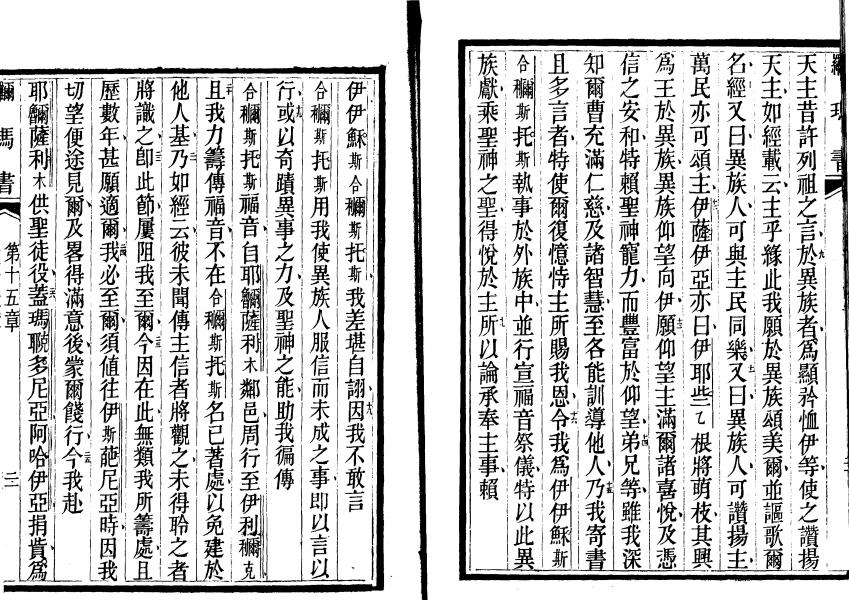 天主昔許列祖之言於異族者爲顯矜恤伊等使之讚揚
天主如經載云主乎緣此我願於異族頌美爾並謳歌爾
名經又曰異族人可與主民同樂又曰異族人可讚揚主
萬民亦可頌主伊薩伊亞亦曰伊耶些乙根將萌枝其興
爲王於異族異族仰望向伊願仰望主滿爾諸喜悅及憑
信之安和特賴聖神寵力而豐富於仰望弟兄等雖我深
知爾曹充滿仁慈及諸智慧至各能訓導他人乃我寄書
且多言者特使爾復憶恃主所賜我恩令我爲伊伊穌斯
合穪斯托斯執事於外族中並行宣福音祭儀特以此異
族獻乘聖神之聖得悅於主所以論承奉主事賴
伊伊穌斯合穪斯托斯我差堪自詡因我不敢言
合穪斯托斯用我使異族人服信而未成之事即以言以
行或以奇蹟異事之力及聖神之能助我徧傳
合穪斯托斯福音自耶穪薩利木鄰邑周行至伊利穪克
且我力籌傳福音不在合穪斯托斯名已著處以免建於
他人基乃如經云彼未聞傳主信者將觀之未得聆之者
將識之卽此節屢阻我至爾今因在此無類我所籌處且
歷數年甚願適爾我必至爾須値往伊斯葩尼亞時因我
切望便途見爾及畧得滿意後蒙爾餞行今我赴
耶穪薩利木供聖徒役蓋瑪聮多尼亞阿哈伊亞捐貲爲
穪瑪書
第十五章
三